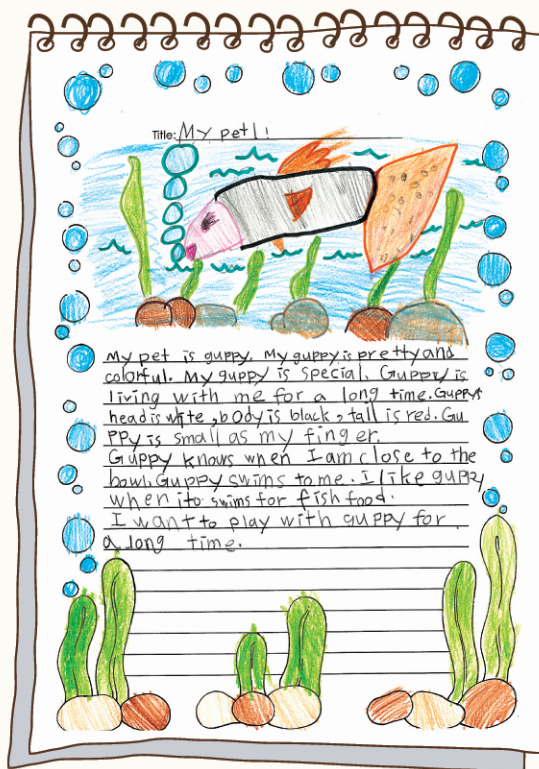 Title: My pet!
My pet is guppy. My guppy is pretty and
colorful. My guppy is special. Guppy is
living with me for a long time. Guppy's
head is white, body is black, tail is red. Gu
ppy is small as my finger.
Guppy knows when I am close to the
bowl. Guppy swims to me. I like guppy
when ito swims for fish food.
I want to play with guppy for
a long time.